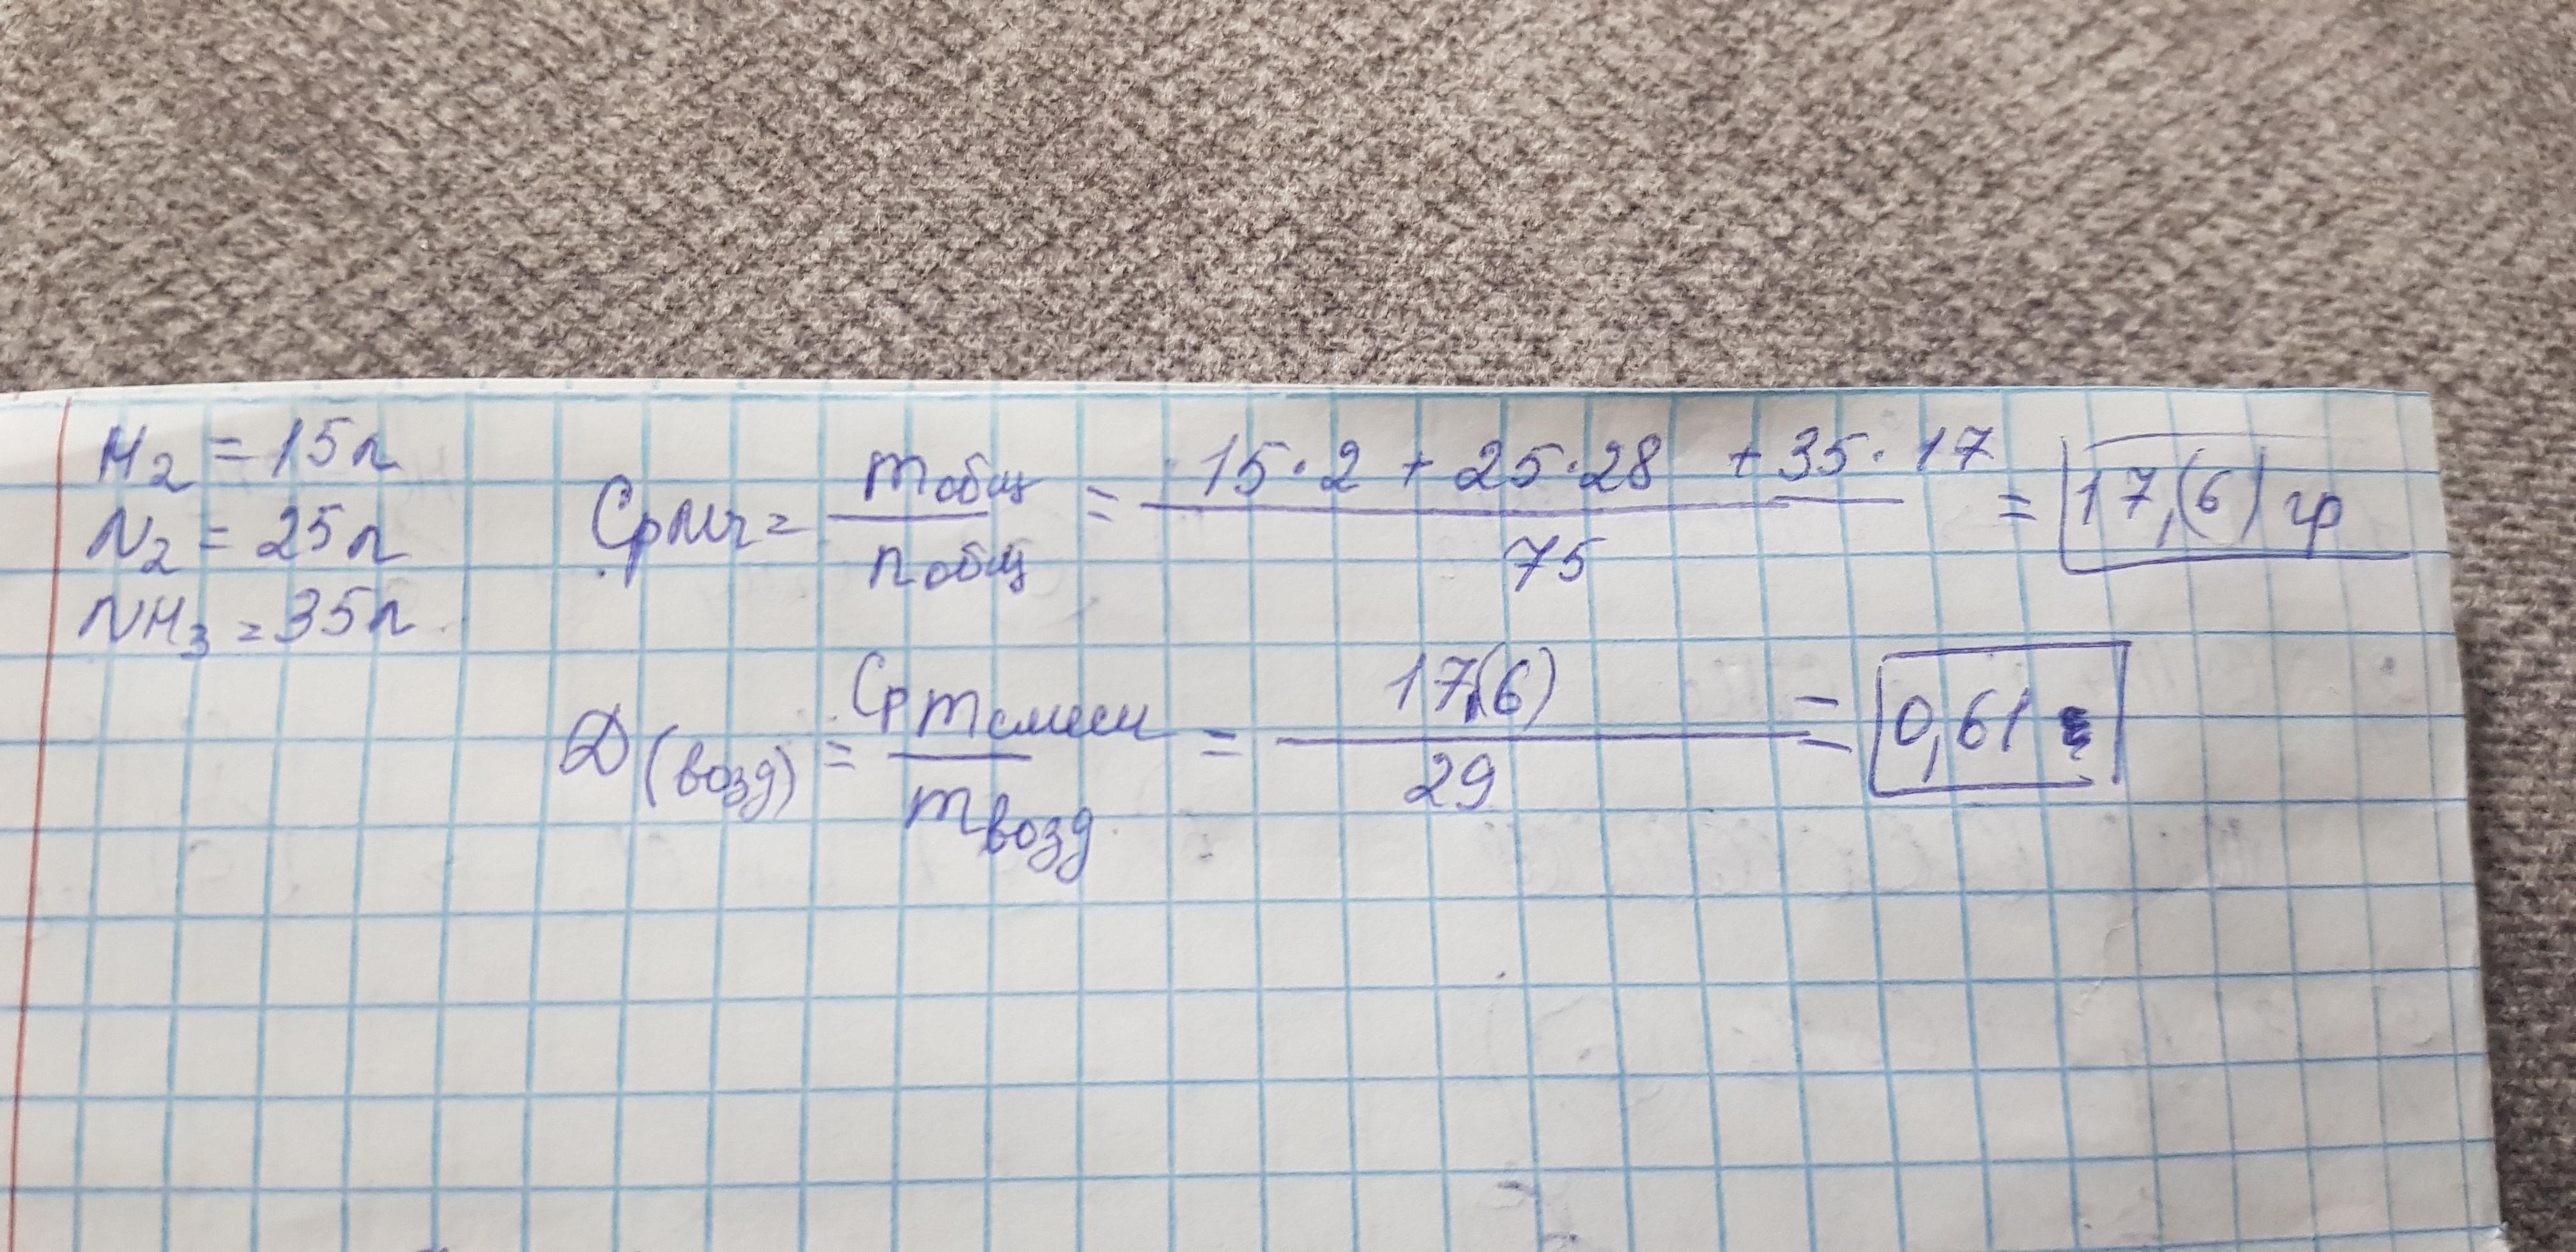 H₂ = 15л
N₂ = 25л
NH₃ = 35л
Ср Mr = mобщ / nобщ = 15·2 + 25·28 + 35·17 / 75 = 17,(6) гр
D(возд) = Ср mсмеси / mвозд = 17,(6) / 29 = 0,61